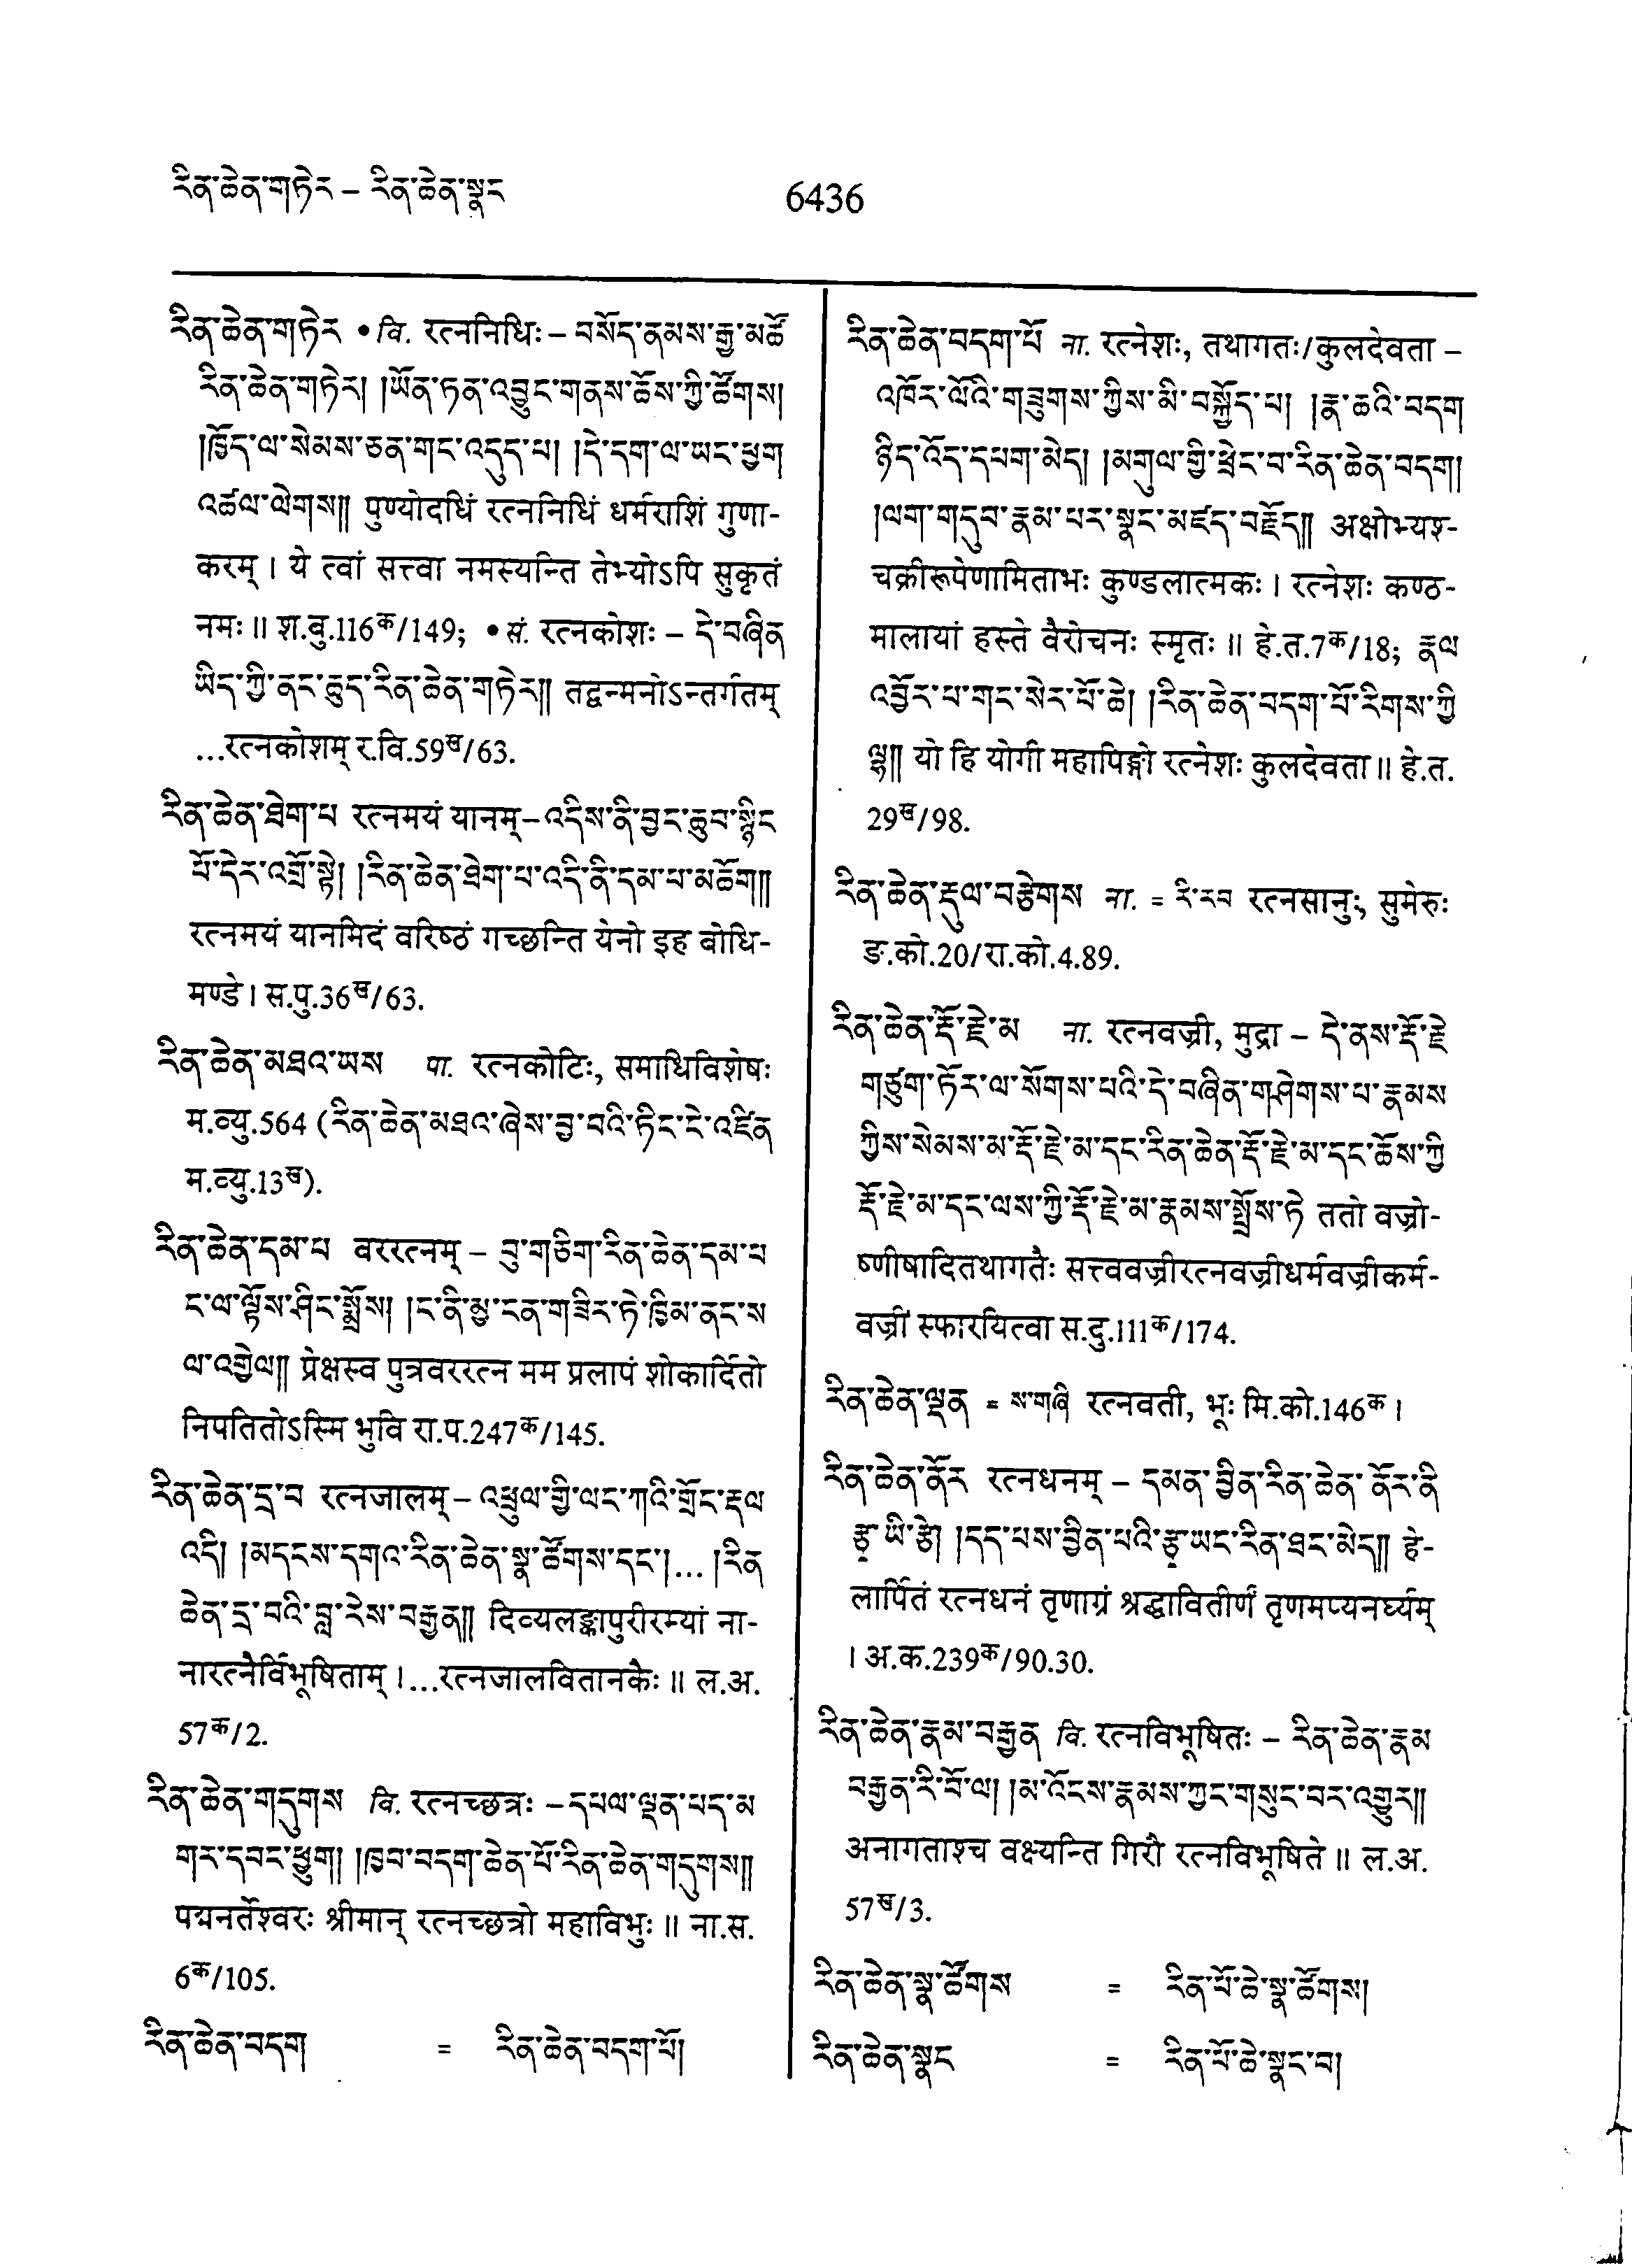 རིན་ཆེན་གཏེར – རིན་ཆེན་སྣང
6436
རིན་ཆེན་གཏེར •वि. रत्ननिधिः – བསོད་ནམས་རྒྱ་མཚོ
རིན་ཆེན་གཏེར། །ཡོན་ཏན་འབྱུང་གནས་ཆོས་ཀྱི་ཚོགས།
།ཁྱོད་ལ་སེམས་ཅན་གང་འདུད་པ། །དེ་དག་ལ་ཡང་ཕྱག
འཚལ་ལེགས༎ पुण्योदधिं रत्ननिधिं धर्मराशिं गुणा-
करम् । ये त्वां सत्त्वा नमस्यन्ति तेभ्योऽपि सुकृतं
नमः ॥ श.बु.116क/149; •सं. रत्नकोशः – དེ་བཞིན
ཡིད་ཀྱི་ནང་ཆུད་རིན་ཆེན་གཏེར༎ तद्वन्मनोऽन्तर्गतम्
...रत्नकोशम् र.वि.59ख/63.
རིན་ཆེན་ཐེག་པ रत्नमयं यानम् – འདིས་ནི་བྱང་ཆུབ་སྙིང
པོ་དེར་འགྲོ་སྟེ། །རིན་ཆེན་ཐེག་པ་འདི་ནི་དམ་པ་མཆོག༎
रत्नमयं यानमिदं वरिष्ठं गच्छन्ति येनो इह बोधि-
मण्डे । स.पु.36ख/63.
རིན་ཆེན་མཐའ་ཡས पा. रत्नकोटिः, समाधिविशेषः
म.व्यु.564 (རིན་ཆེན་མཐའ་ཞེས་བྱ་བའི་ཏིང་ངེ་འཛིན
म.व्यु.13ख).
རིན་ཆེན་དམ་པ वररत्नम् – བུ་གཅིག་རིན་ཆེན་དམ་པ
ང་ལ་ལྟོས་ཤིང་སྨྲོས། །ང་ནི་མྱ་ངན་གཟིར་ཏེ་ཁྱིམ་ནང་ས
ལ་འགྱེལ༎ प्रेक्षस्व पुत्रवररत्न मम प्रलापं शोकार्दितो
निपतितोऽस्मि भुवि रा.प.247क/145.
རིན་ཆེན་དྲ་བ रत्नजालम् – འཕྲུལ་གྱི་ལང་ཀའི་གྲོང་རྡལ
འདི། །མདངས་དགའ་རིན་ཆེན་སྣ་ཚོགས་དང་།... །རིན
ཆེན་དྲ་བའི་བླ་རེས་བརྒྱན༎ दिव्यलङ्कापुरीरम्यां ना-
नारत्नैर्विभूषिताम् ।...रत्नजालवितानकैः ॥ ल.अ.
57क/2.
རིན་ཆེན་གདུགས वि. रत्नच्छत्रः – དཔལ་ལྡན་པད་མ
གར་དབང་ཕྱུག། །ཁྱབ་བདག་ཆེན་པོ་རིན་ཆེན་གདུགས༎
पद्मनर्तेश्वरः श्रीमान् रत्नच्छत्रो महाविभुः ॥ ना.स.
6क/105.
རིན་ཆེན་བདག = རིན་ཆེན་བདག་པོ།
རིན་ཆེན་བདག་པོ ना. रत्नेशः, तथागतः/कुलदेवता –
འཁོར་ལོའི་གཟུགས་ཀྱིས་མི་བསྐྱོད་པ། །རྣ་ཆའི་བདག
ཉིད་འོད་དཔག་མེད། །མགུལ་གྱི་ཕྲེང་བ་རིན་ཆེན་བདག།
།ལག་གདུབ་རྣམ་པར་སྣང་མཛད་བརྗོད༎ अक्षोभ्यश्-
चक्रीरूपेणामिताभः कुण्डलात्मकः । रत्नेशः कण्ठ-
मालायां हस्ते वैरोचनः स्मृतः ॥ हे.त.7क/18; རྣལ
འབྱོར་པ་གང་སེར་པོ་ཆེ། །རིན་ཆེན་བདག་པོ་རིགས་ཀྱི
ལྷ༎ यो हि योगी महापिङ्गो रत्नेशः कुलदेवता ॥ हे.त.
29ख/98.
རིན་ཆེན་རྡུལ་བརྩེགས ना. = རི་རབ रत्नसानुः, सुमेरुः
ङ.को.20/रा.को.4.89.
རིན་ཆེན་རྡོ་རྗེ་མ ना. रत्नवज्री, मुद्रा – དེ་ནས་རྡོ་རྗེ
གཙུག་ཏོར་ལ་སོགས་པའི་དེ་བཞིན་གཤེགས་པ་རྣམས
ཀྱིས་སེམས་མ་རྡོ་རྗེ་མ་དང་རིན་ཆེན་རྡོ་རྗེ་མ་དང་ཆོས་ཀྱི
རྡོ་རྗེ་མ་དང་ལས་ཀྱི་རྡོ་རྗེ་མ་རྣམས་སྤྲོས་ཏེ ततो वज्रो-
ष्णीषादितथागतैः सत्त्ववज्रीरत्नवज्रीधर्मवज्रीकर्म-
वज्रीं स्फारयित्वा स.दु.111क/174.
རིན་ཆེན་ལྡན = ས་གཞི रत्नवती, भूः मि.को.146क ।
རིན་ཆེན་ནོར रत्नधनम् – དམན་བྱིན་རིན་ཆེན་ནོར་ནི
རྩྭ་ཡི་རྩེ། །དད་པས་བྱིན་པའི་རྩྭ་ཡང་རིན་ཐང་མེད༎ हे-
लार्पितं रत्नधनं तृणाग्रं श्रद्धावितीर्णं तृणमप्यनर्घ्यम्
। अ.क.239क/90.30.
རིན་ཆེན་རྣམ་བརྒྱན वि. रत्नविभूषितः – རིན་ཆེན་རྣམ
བརྒྱན་རི་བོ་ལ། །མ་འོངས་རྣམས་ཀྱང་གསུང་བར་འགྱུར༎
अनागताश्च वक्ष्यन्ति गिरौ रत्नविभूषिते ॥ ल.अ.
57ख/3.
རིན་ཆེན་སྣ་ཚོགས = རིན་པོ་ཆེ་སྣ་ཚོགས།
རིན་ཆེན་སྣང = རིན་པོ་ཆེ་སྣང་བ།